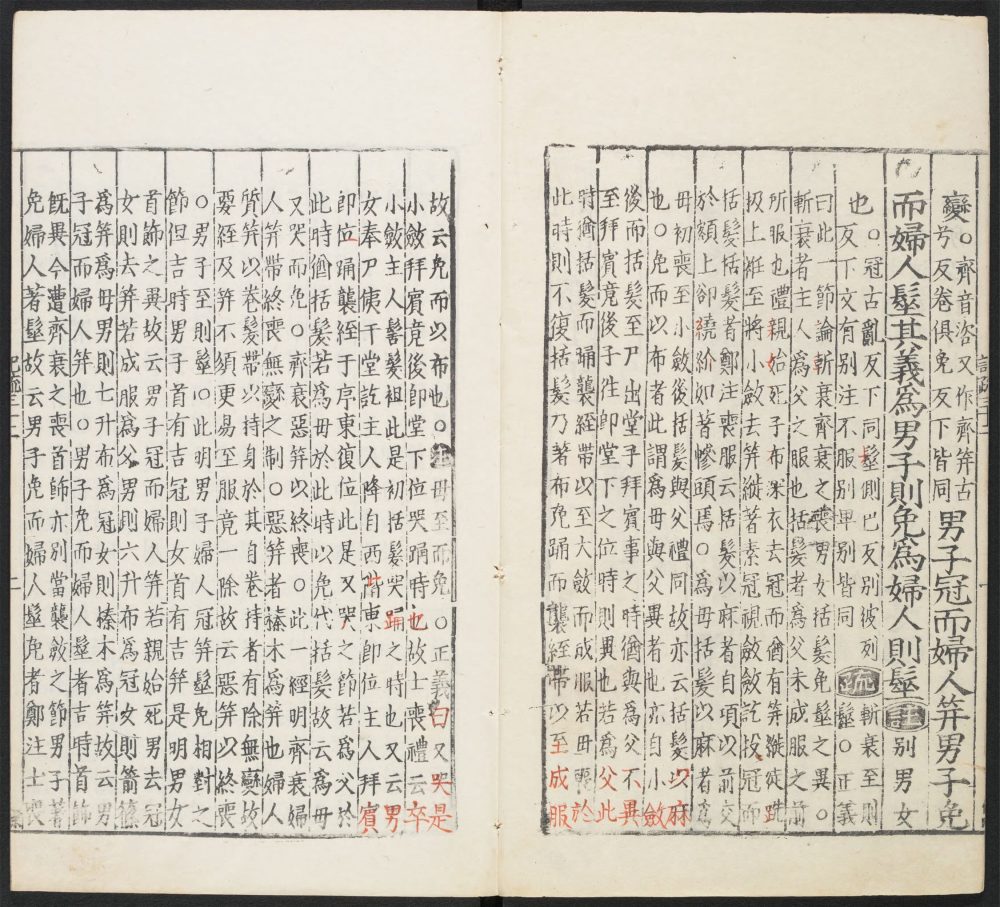 變○齊音咨又作齊笄古
兮反卷俱免反下皆同
男子冠而婦人笄男子免
而婦人髽其義為男子則免為婦人則髽注別男女
也○冠古亂反下同髽側巴反別彼列
反下文有別注不服別卑別皆同疏斬衰至則
髽○正義
曰此一節論斬衰齊衰之喪男女括髮免髽之異○
斬衰者主人為父之服也括髮者為父未成服之前
所服也禮親始死子布深衣去冠而猶有笄縰徒跣
扱上衽至將小斂去笄縰著素冠視斂斂訖投冠而
括髮括髮者鄭注喪服云括髮以麻者自項以前交
於額上卻繞紒如著幓頭焉○為母括髮以麻者為
母初喪至小斂後括髮與父禮同故亦云括髮以麻
也○免而以布者此謂為母與父異者也亦自小斂
後而括髮至尸出堂子拜賓事之時猶與為父不異
至拜賓竟後子往即堂下之位時則異也若為父此
時猶括髮而踊襲絰帶以至大斂而成服若母喪於
此時則不復括髮乃著布免踊而襲絰帶以至成服
故云免而以布也○注母至而免○正義曰又哭是
小斂拜賓竟後即堂下位哭踊時也故士喪禮云卒
小斂主人髻髮袒此是初括髮哭踊之時也又云男
女奉尸侇于堂訖主人降自西階東即位主人拜賓
即位踊襲絰于序東復位此是又哭之節若為父於
此時猶括髮若為母於此時以免代括髮故云為母
又哭而免○齊衰惡笄以終喪○此一經明齊衰婦
人笄帶終喪無變之制○惡笄者榛木為笄也婦人
質笄以卷髮帶以持身於其自卷持者有除無變故
要絰及笄不須更易至服竟一除故云惡笄以終喪
○男子至則髽○此明男子婦人冠笄髽免相對之
節但吉時男子首有吉冠則女首有吉笄是明男女
首飾之異故云男子冠而婦人笄若親始死男去冠
女則去笄若成服為父男則六升布為冠女則箭篠
為笄為母男則七升布為冠女則榛木為笄故云男
子冠而婦人笄也○男子免而婦人髽者吉時首飾
既異今遭齊衰之喪首飾亦別當襲斂之節男子著
免婦人著髽故云男子免而婦人髽免者鄭注士喪